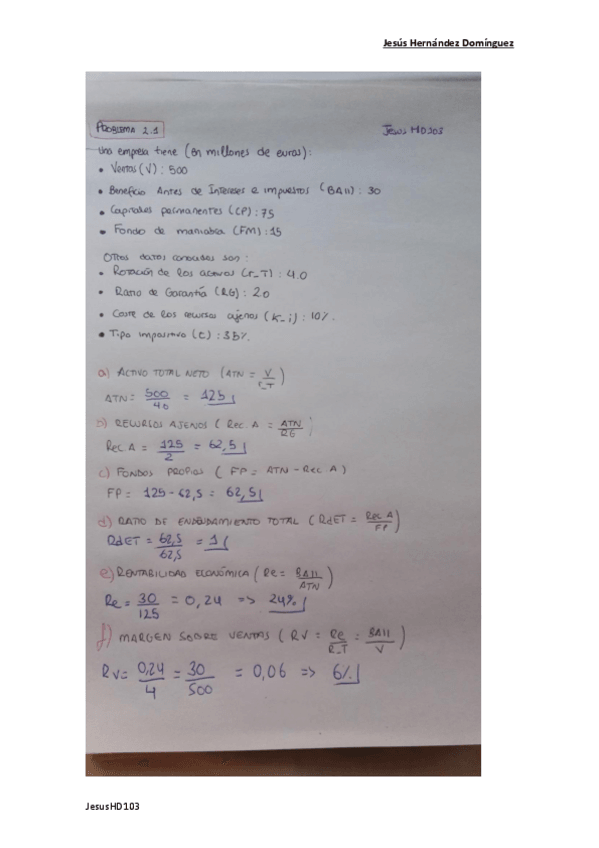 Jesús Hernández Domínguez
PROBLEMA 2.1
Jesus HD103
Una empresa tiene (en millones de euros):
• Ventas (V) : 500
• Beneficio Antes de Intereses e impuestos (BAII) : 30
• Capitales permanentes (CP) : 75
• Fondo de maniobra (FM) : 15
Otros datos conocidos son :
• Rotación de los activos (r_T) : 4.0
• Ratio de Garantía (RG) : 2.0
• Coste de los recursos ajenos (K_i) : 10%.
• Tipo impositivo (t) : 35%.
a) ACTIVO TOTAL NETO (ATN = V / r_T)
ATN = 500 / 4.0 = 125
b) RECURSOS AJENOS ( Rec. A = ATN / RG )
Rec A = 125 / 2 = 62,5
c) FONDOS PROPIOS ( FP = ATN - Rec A )
FP = 125 - 62,5 = 62,5
d) RATIO DE ENDEUDAMIENTO TOTAL ( RdET = Rec A / FP )
RdET = 62,5 / 62,5 = 1
e) RENTABILIDAD ECONÓMICA ( Re = BAII / ATN )
Re = 30 / 125 = 0,24 => 24%
f) MARGEN SOBRE VENTAS ( RV = Re / R_T = BAII / V )
RV = 0,24 / 4 = 30 / 500 = 0,06 => 6%
JesusHD103